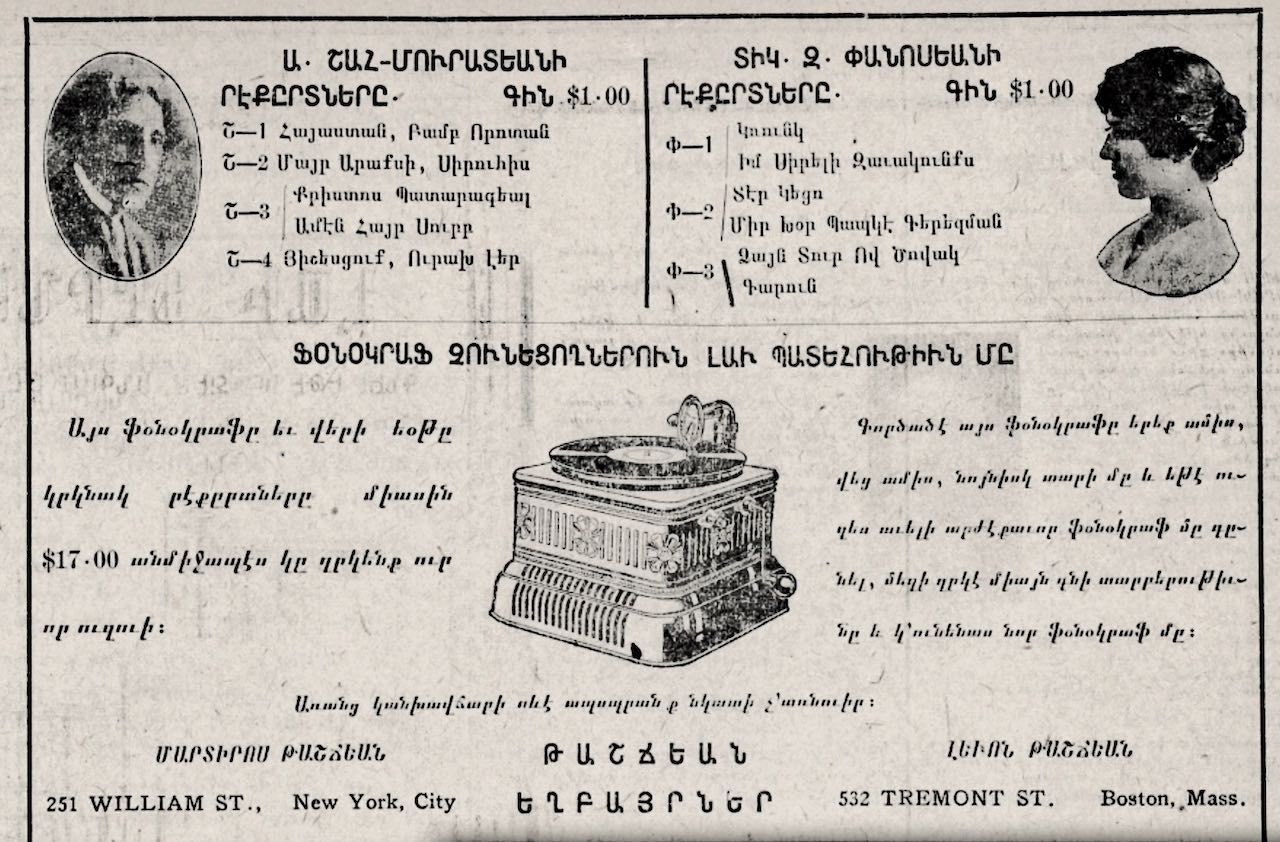 Ա. ՇԱՀ-ՄՈՒՐԱՏԵԱՆԻ
ՐԷՔԸՐՏՆԵՐԸ. ԳԻՆ $1.00
Շ—1 Հայաստան, Բամբ Որոտան
Շ—2 Մայր Արաքսի, Սիրուհիս
Շ—3 Քրիստոս Պատարագեալ
Ամէն Հայր Սուրբ
Շ—4 Յիշեսցուք, Ուրախ Լեր
ՏԻԿ. Զ. ՓԱՆՈՍԵԱՆԻ
ՐԷՔԸՐՏՆԵՐԸ. ԳԻՆ $1.00
Փ—1 Կռունկ
Իմ Սիրելի Զաւակունքս
Փ—2 Տէր Կեցո
Միր Խօր Պապկէ Գերեզման
Փ—3 Ձայն Տուր Ով Ծովակ
Գարուն
ՖՕՆՕԿՐԱՖ ՉՈՒՆԵՑՈՂՆԵՐՈՒՆ ԼԱՒ ՊԱՏԵՀՈՒԹԻՒՆ ՄԸ
Այս ֆօնօկրաֆը եւ վերի եօթը
կրկնակ րէքըրտները միասին
$17.00 անմիջապէս կը ղրկենք ուր
որ ուզուի:
Գործածէ այս ֆօնօկրաֆը երեք ամիս,
վեց ամիս, նոյնիսկ տարի մը և եթէ ու-
զես աւելի արժէքաւոր ֆօնօկրաֆ մը գը-
նել, մեզի ղրկէ միայն գնի տարբերութիւ-
նը և կ'ունենաս նոր ֆօնօկրաֆ մը:
Առանց կանխավճարի ոևէ ապսպրանք նկատի չ'առնուիր:
ՄԱՐՏԻՐՈՍ ԹԱՇՃԵԱՆ
251 WILLIAM ST., New York, City
ԹԱՇՃԵԱՆ
ԵՂԲԱՅՐՆԵՐ
ԼԵՒՈՆ ԹԱՇՃԵԱՆ
532 TREMONT ST. Boston, Mass.